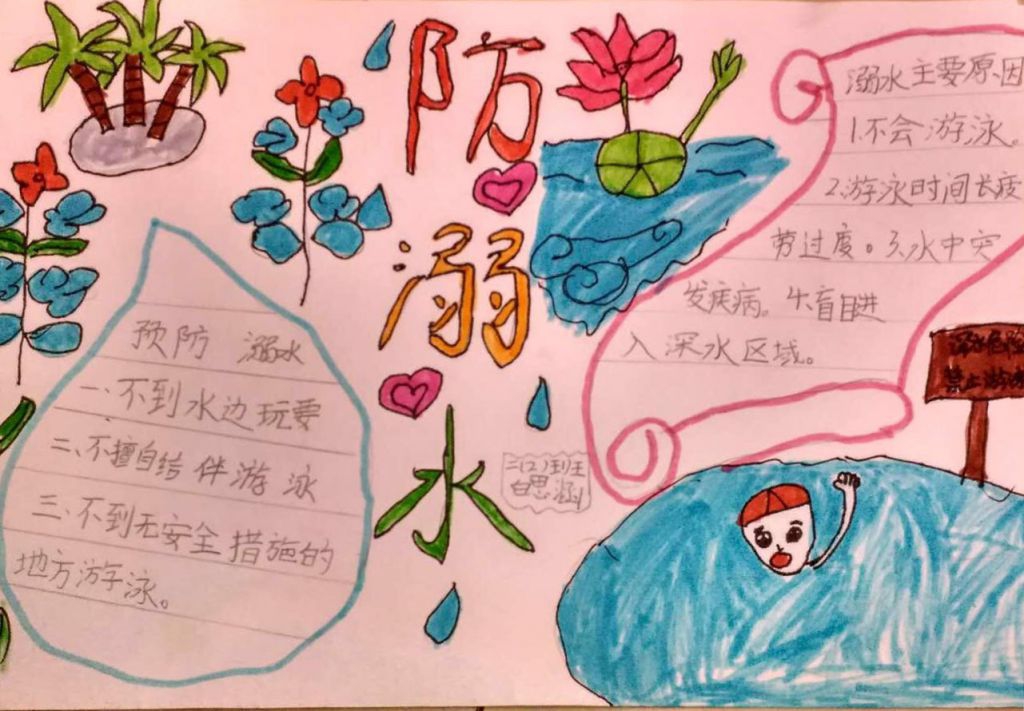 防
溺
水
溺水主要原因
1.不会游泳。
2.游泳时间长疲
劳过度。3.水中突
发疾病。4.盲目进
入深水区域。
预防 溺水
一、不到水边玩耍
二、不擅自结伴游泳
三、不到无安全措施的
地方游泳。
二(2)班
白思涵
深水危险
禁止游泳